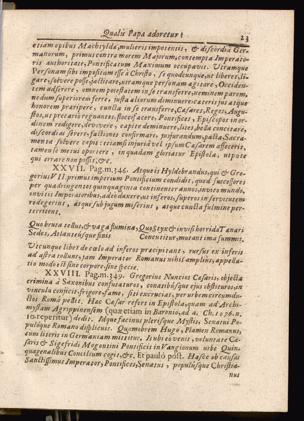 Qualis Papa adoretur?
23
etiam opibus Machtylda, mulieris impotentis, & discordia Ger-
manorum, primus contra morem Majorum, contempta Imperato-
ris authoritate, Pontificatum Maximum occupavit. Utramque
Personam sibi impositam esse à Christo, se quodcunque, ut liberet, li-
gare, solvere posse, jactitare, utramque personam agitare, Occiden-
tem adserere, omnem potestatem in se transferre, neminem parem,
nedum superiorem ferre, justa aliorum diminuere, cæteris jus atque
honorem præripere, cuncta in se transferre, Cæsares, Reges,
ut precario regnantes, floccifacere, Pontifices, Episcopos in or-
dinem redigere, devovere, capite diminuere, lites, bella concitare,
discordias serere, factiones confirmare, jusjurandum, pacta, Sacra-
menta solvere cepit: etiamsi injuriâ vel ipsum Cæsarem affecerit,
tamen se metui oportere, in quadam gloriatur Epistola, utpote
qui errare non possit, &c.
XXVII. Pag. m. 346. Atque is Hyldebrandus, qui & Gre-
gorius VII. primus imperium Pontificium condidit, quod successores
per quadringentos quinquaginta continenter annos, invito mundo,
invitis Imperatoribus, adeò duxere, ut inferos, superos in servitutem
redegerint, atque sub jugum miserint, atque cuncta fulmine per-
terrerent.
Quo bruta tellus, & vaga flumina, Quo Styx & invisi horrida Tænari
Sedes, Atlanteusque finis Concutitur, mutant ima summis.
Utcunque libet de cœlo ad inferos præcipitant, rursus ex inferis
ad astra tollunt, jam Imperator Romanus nihil amplius, appella-
tio modò est sine corpore, sine specie.
XXVIII. Pag. m. 349. Gregorius Nuncios Cæsaris, objecta
crimina à Saxonibus confutaturos, conatibusque ejus obstituros, in
vincula conjicit, frigore, fame, siti excruciat, per urbem circundu-
ctos Româ pellit. Hac Cæsar refert in Epistola, quam ad Archi-
mystam Agrippinensem (quæ etiam in Baronio, ad a. Ch. 1076. n.
10. reperitur) dedit. Idque facinus plerisque Mystis, Senatui Po-
pulique Romano displicuit. Quamobrem Hugo, Flamen Romanus,
cum literis in Germaniam mittitur. Is ubi eò venit, voluntate Cæ-
saris & Sigefridi Mogontini Pontificis in Vangionum urbe Quin-
quagenalibus Concilium cogit, &c. Et paulò post. Hasce ob causas
Sanctissimus Imperator, Pontifices, Senatus, populusque Christia-
nus